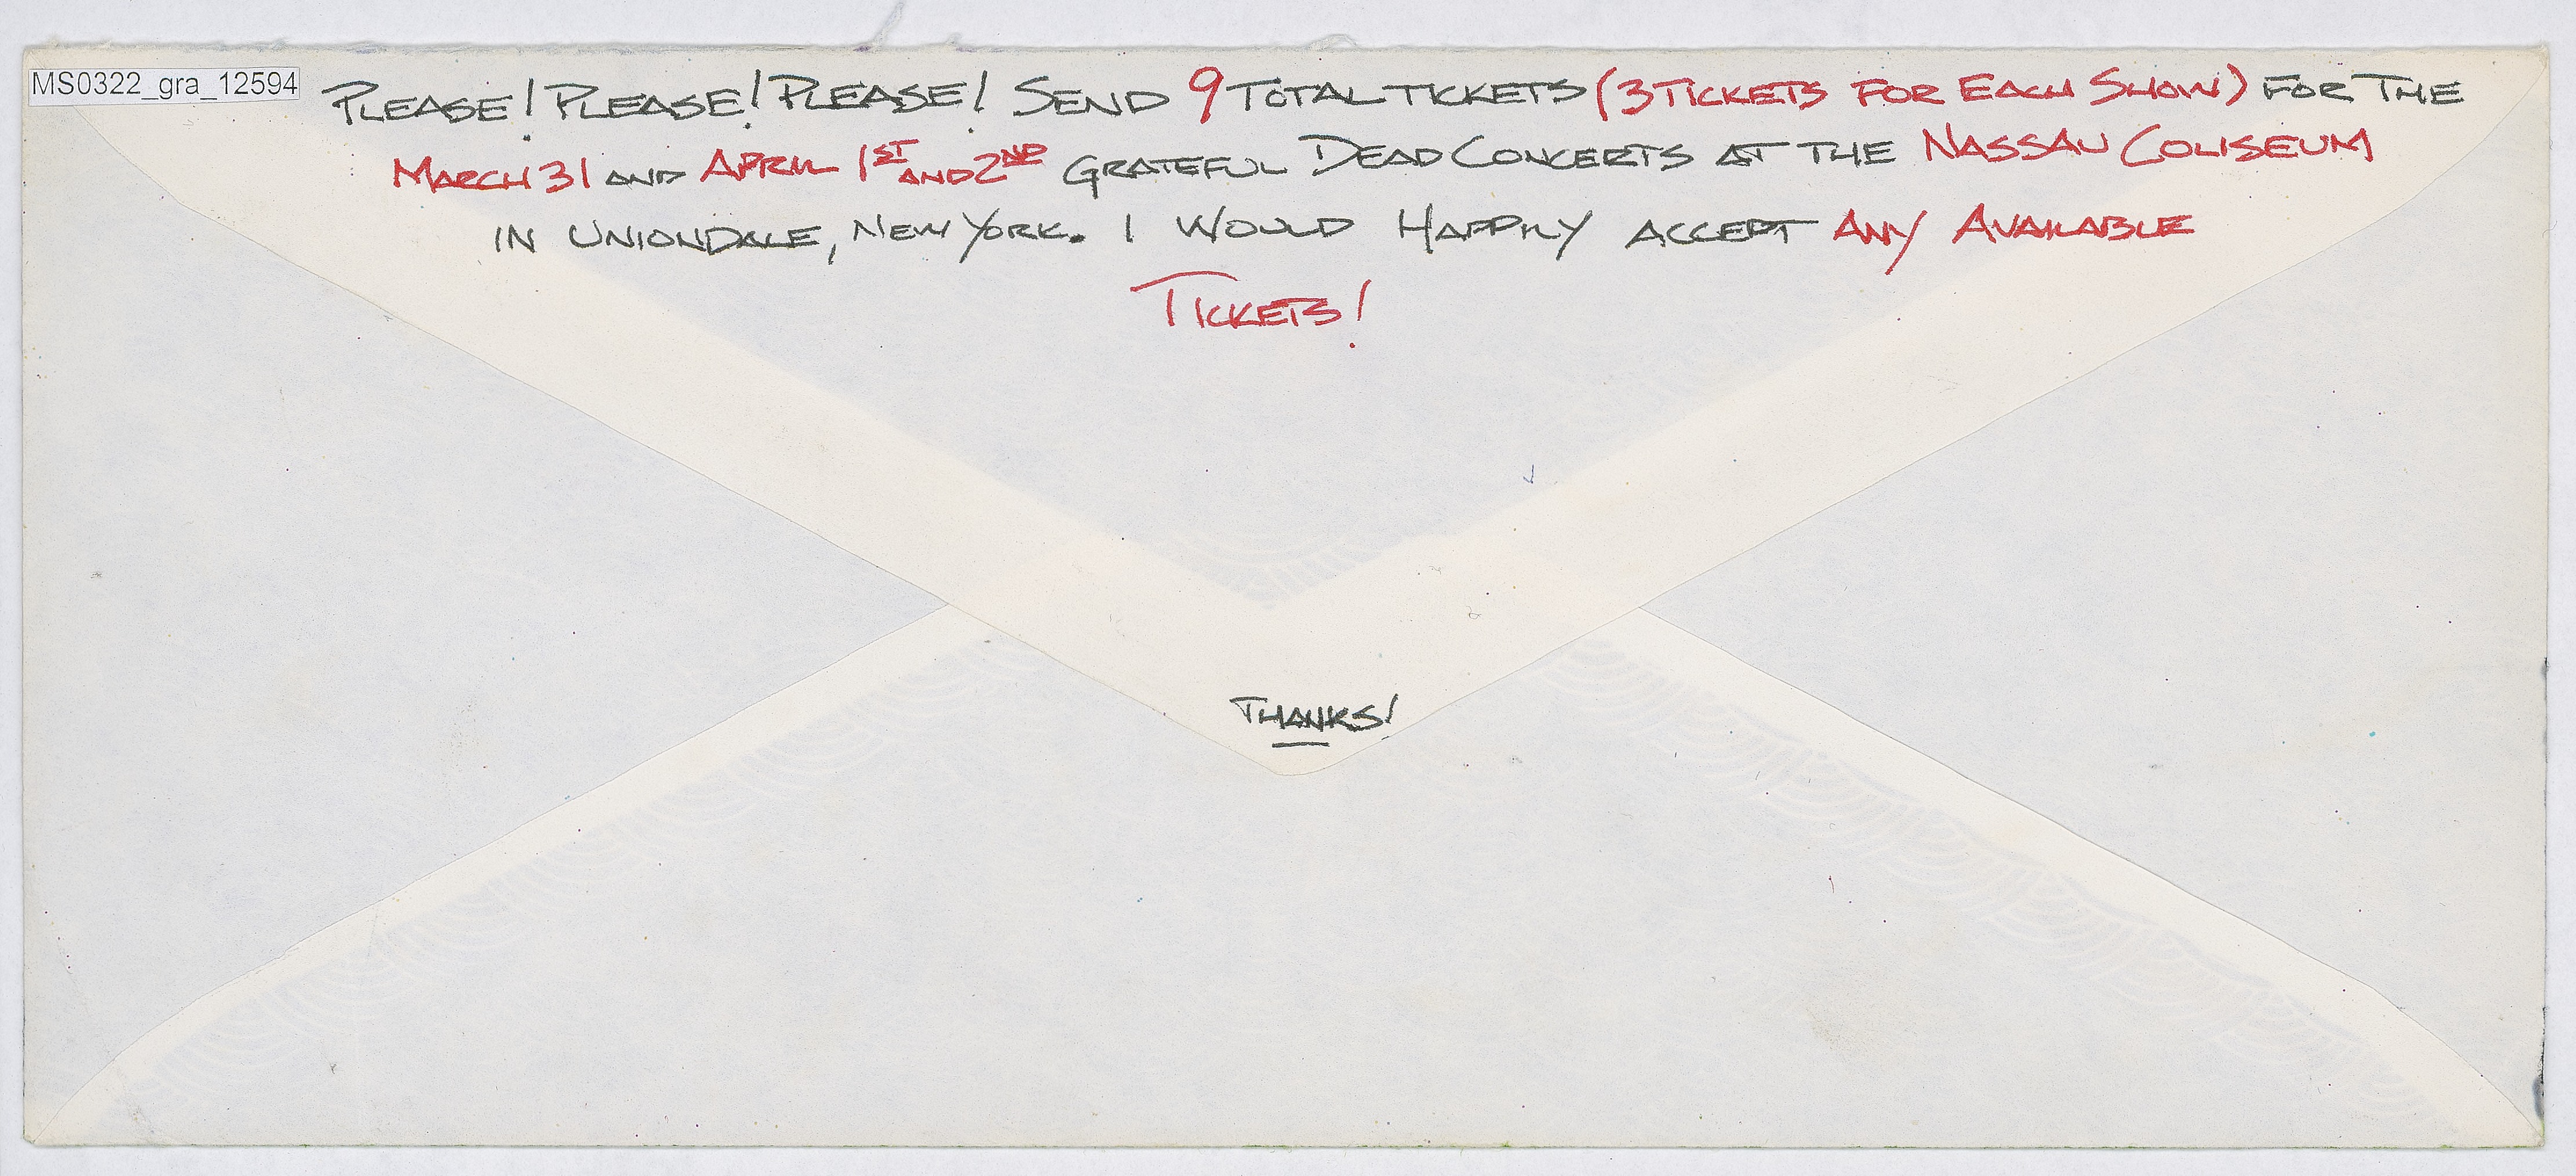 MS0322_gra_12594
PLEASE! PLEASE! PLEASE! SEND 9 TOTAL TICKETS (3 TICKETS FOR EACH SHOW) FOR THE
MARCH 31 AND APRIL 1ST AND 2ND GRATEFUL DEAD CONCERTS AT THE NASSAU COLISEUM
IN UNIONDALE, NEW YORK. I WOULD HAPPILY ACCEPT ANY AVAILABLE
TICKETS!
THANKS!